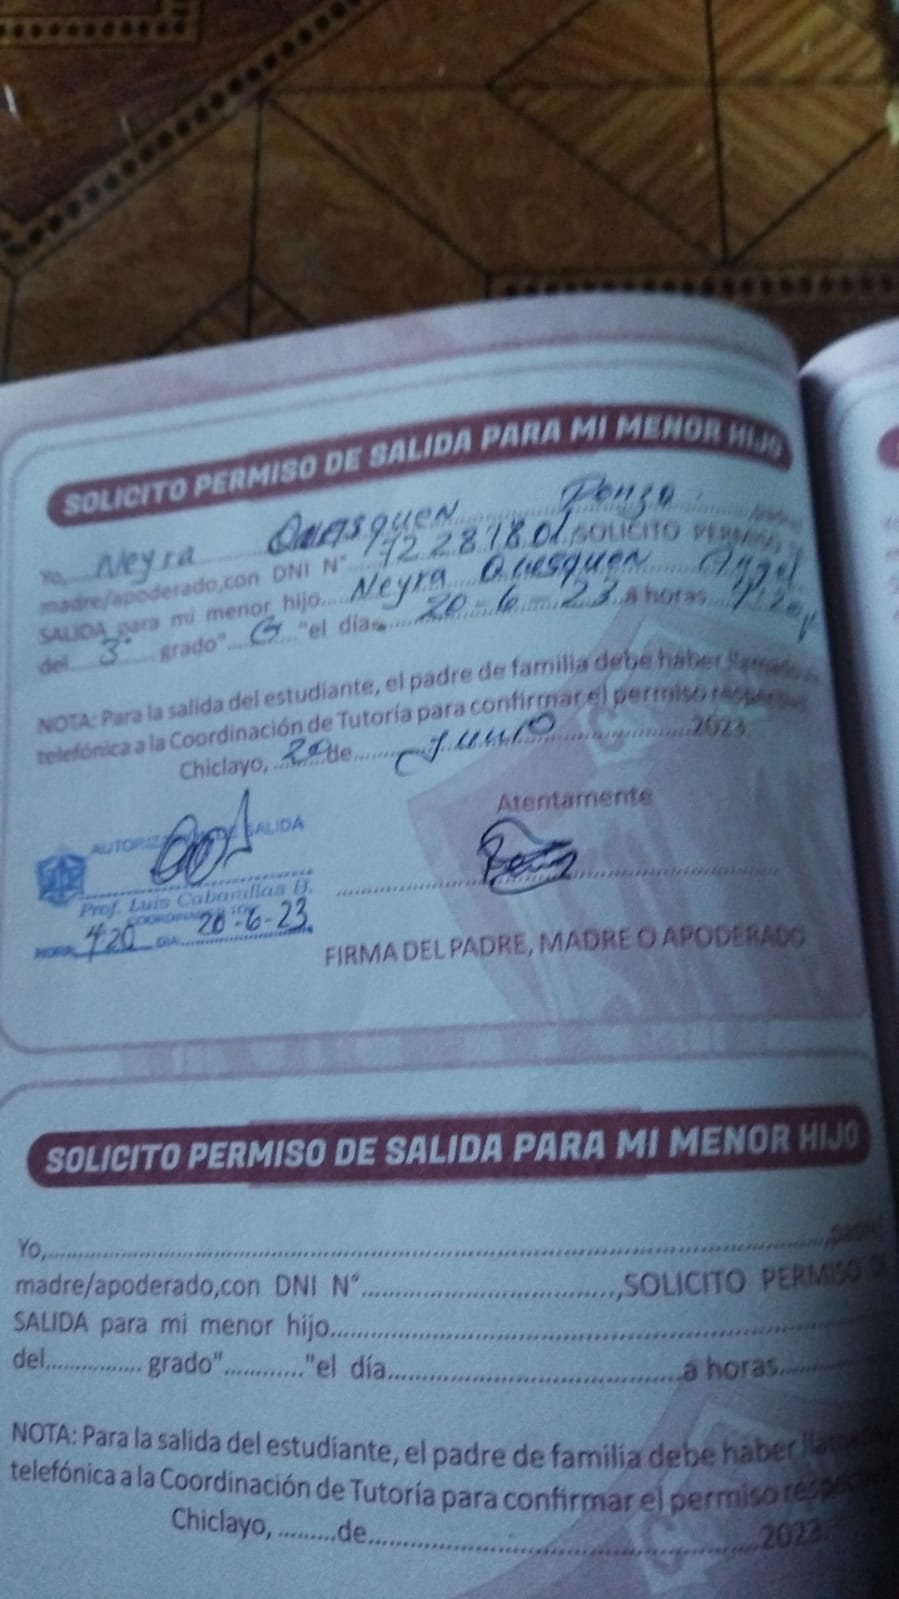 SOLICITO PERMISO DE SALIDA PARA MI MENOR HIJO
Yo, Neyra Quesquen Penza
madre/apoderado,con DNI N° 72281801,SOLICITO PERMISO
SALIDA para mi menor hijo Neyra Quesquen Angel
del 3° grado" G "el día 20-6-23 a horas
NOTA: Para la salida del estudiante, el padre de familia debe haber
telefónica a la Coordinación de Tutoría para confirmar el permiso
Chiclayo, 20 de Junio 2023
Atentamente
SALIDA
Prof. Luis Cabanillas B.
HORA 4:20 DIA 20-6-23
FIRMA DEL PADRE, MADRE O APODERADO
SOLICITO PERMISO DE SALIDA PARA MI MENOR HIJO
Yo,........,padre/
madre/apoderado,con DNI N°........,SOLICITO PERMISO DE
SALIDA para mi menor hijo........
del........ grado"........"el día........a horas........
NOTA: Para la salida del estudiante, el padre de familia debe haber
telefónica a la Coordinación de Tutoría para confirmar el permiso
Chiclayo, ........de........2023